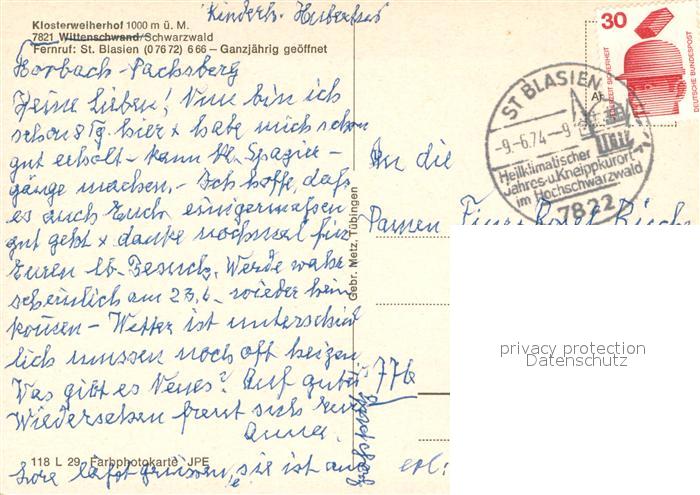 Kinderh. Hubertus
Klosterweiherhof 1000 m ü. M.
7821 Wittenschwand/Schwarzwald
Fernruf: St. Blasien (07672) 666 – Ganzjährig geöffnet
Horbach-Dachsberg
Meine Lieben! Nun bin ich
schon 8 Tg. hier + habe mich schon
gut erholt – kann kl. Spazier-
gänge machen. – Ich hoffe, daß
es auch Euch einigermaßen
gut geht + danke nochmal für
Euren lb. Besuch. Werde wahr-
scheinlich am 23.6. wieder heim
kommen – Wetter ist unterschied
lich müssen noch oft heizen
Was gibt es Neues? Auf gutes
Wiedersehen freut sich Eure
Anna.
118 L 29 Farbphotokarte JPE
Lore läßt grüssen, sie ist auf
Gebr. Metz, Tübingen
30
DEUTSCHE BUNDESPOST
JEDERZEIT SICHERHEIT
ST BLASIEN
-9.-6.74-9
Heilklimatischer
Jahres-u.Kneippkurort
im Hochschwarzwald
7822
An die
Damen
776
privacy protection
Datenschutz